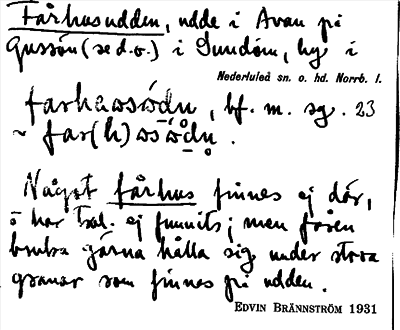 Fårhusudden, udde i Avan på
Gussön (se d.o.) i Sundom, by i
Nederluleå sn. o. hd. Norrb. l.
bf. m. sg. 23
~
Något fårhus finnes ej där,
o har trol. ej funnits; men fåren
bruka gärna hålla sig under stora
granar som finnes på udden.
EDVIN BRÄNNSTRÖM 1931